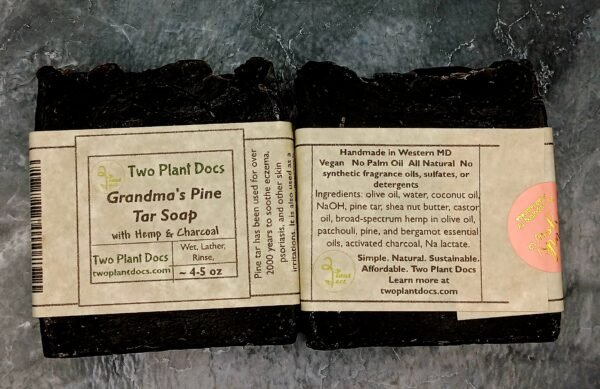 Two Plant Docs
Grandma's Pine
Tar Soap
with Hemp & Charcoal
Two Plant Docs
twoplantdocs.com
Wet, Lather,
Rinse,
~ 4-5 oz
Pine tar has been used for over
2000 years to soothe eczema,
psoriasis, and other skin
irritations. It is also used as a
Handmade in Western MD
Vegan No Palm Oil All Natural No
synthetic fragrance oils, sulfates, or
detergents
Ingredients: olive oil, water, coconut oil,
NaOH, pine tar, shea nut butter, castor
oil, broad-spectrum hemp in olive oil,
patchouli, pine, and bergamot essential
oils, activated charcoal, Na lactate.
Simple. Natural. Sustainable.
Affordable. Two Plant Docs
Learn more at
twoplantdocs.com